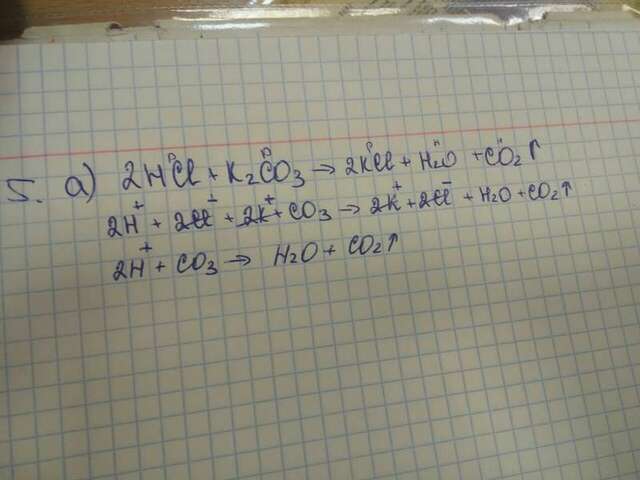 5. а) 2HCl + K₂CO₃ → 2KCl + H₂O + CO₂↑
2H⁺ + 2Cl⁻ + 2K⁺ + CO₃ → 2K⁺ + 2Cl⁻ + H₂O + CO₂↑
2H⁺ + CO₃ → H₂O + CO₂↑